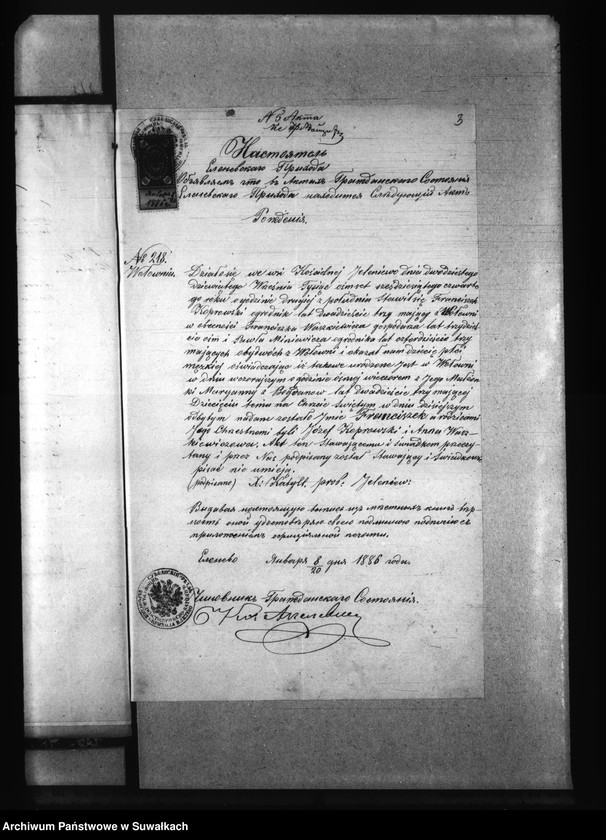 № 6 Акта
3
Настоятель
Еленевского Прихода
Объявляетъ что въ Актахъ Гражданского Состоянiя
Еленевского Прихода находится Следующiй Актъ
Рожденiя.
№ 218.
Wołownia.
Działo się we wsi Kościelnej Jeleniewo dnia dwudziestego
dziewiątego Września Tysiąc ośmset sześćdziesiątego czwarte-
go roku o godzinie drugiej z południa Stawił się Franciszek
Koprowski ogrodnik lat dwadzieście trzy mający z Wołowni
w obecności Franciszka Waszkiewicza gospodarza lat trzydzie-
ści ośm i Pawła Miniewicza ogrodnika lat czterdzieście trzy
mających obydwóch z Wołowni i okazał nam dziecię płci
męzkiej oświadczając iż takowe urodzone jest w Wołowni
w dniu wczorajszym o godzinie ósmej wieczorem z Jego Małżon-
ki Maryanny z Bogdanow lat dwadzieście trzy mającej
Dziecięciu temu na Chrzcie Świętym w dniu dzisiejszym
odbytym nadane zostało Imie Franciszek a rodzicami
Jego Chrzestnemi byli Józef Koprowski i Anna Wasz-
kiewiczowa. Akt ten Stawającemu i świadkom przeczy-
tany i przez Nas podpisany został Stawający i Świadkowie
pisać nie umieją.
(podpisano) X: Katyll. prob: Jeleniew:
Выдавая настоящую выпись из местныхъ книгъ вѣр-
ность оной удостовѣряю своею подписью съ
приложенiемъ оффицiальной печати.
Еленево Января 8/20 дня 1886 года.
Чиновникъ Гражданского Состоянiя.
Archiwum Państwowe w Suwałkach